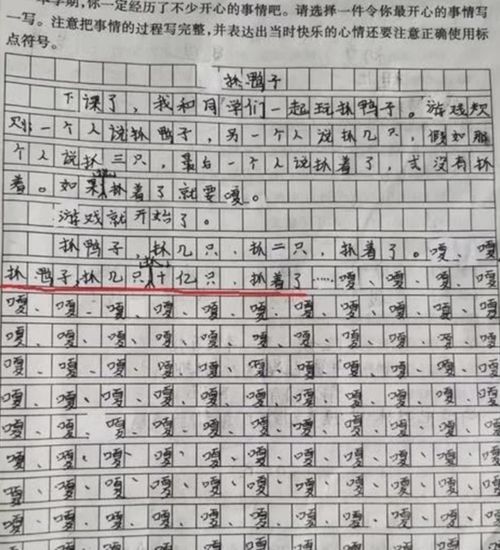 学期,你一定经历了不少开心的事情吧。请选择一件令你最开心的事情写
一写。注意把事情的过程写完整,并表达出当时快乐的心情还要注意正确使用标
点符号。
抓鸭子
下课了，我和同学们一起玩抓鸭子。游戏规
则:一个人说抓鸭子，另一个人说抓几只，假如那
个人说抓三只，最后一个人说抓着了，或没有抓
着。如果抓着了就要嘎。
游戏就开始了。
抓鸭子，抓几只，抓二只，抓着了。嘎、嘎、
抓鸭子，抓几只，抓十亿只，抓着了……嘎、嘎、嘎、嘎、
嘎、嘎、嘎、嘎、嘎、嘎、嘎、嘎、嘎、嘎、嘎
嘎、嘎、嘎、嘎、嘎、嘎、嘎、嘎、嘎、嘎、嘎
嘎、嘎、嘎、嘎、嘎、嘎、嘎、嘎、嘎、嘎、嘎
嘎、嘎、嘎、嘎、嘎、嘎、嘎、嘎、嘎、嘎、嘎
嘎、嘎、嘎、嘎、嘎、嘎、嘎、嘎、嘎、嘎、嘎
嘎、嘎、嘎、嘎、嘎、嘎、嘎、嘎、嘎、嘎、嘎
嘎、嘎、嘎、嘎、嘎、嘎、嘎、嘎、嘎、嘎、嘎
嘎、嘎、嘎、嘎、嘎、嘎、嘎、嘎、嘎、嘎、嘎